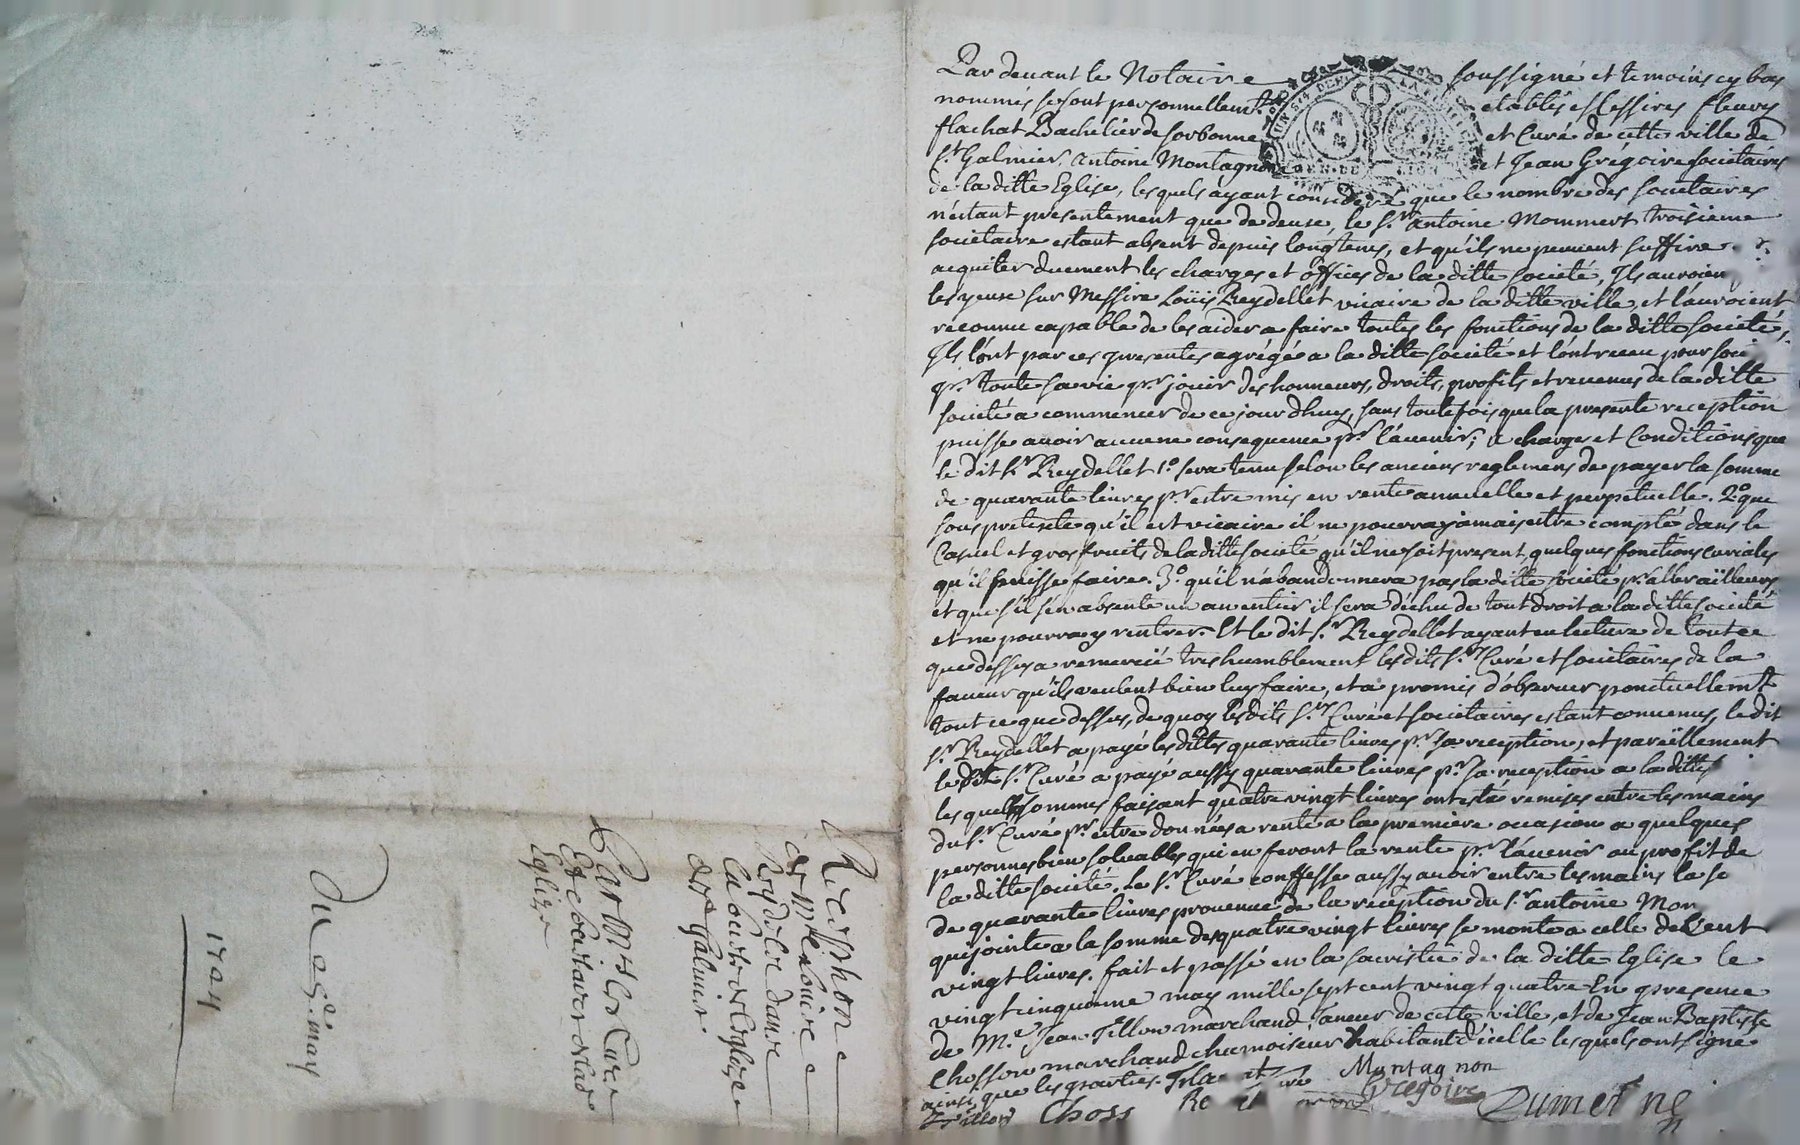 Par devant le Notaire soussigné et temoins cy bas
nommés se sont personnellemt. etablis Messires fleury
flachat Bachelier de sorbonne et Curé de cette ville de
St. Galmier, antoine Montagnon et Jean Grégoire societaires
de la ditte Eglise, lesquels ayant consideré que le nombre des societaires
n'estant presentement que de deux, le Sr. antoine Mommert troisieme
societaire estant absent depuis longtems, et qu'ils ne peuvent suffire
acquiter duement les charges et offices de la ditte societé, Ils auroien
les yeux sur Messire Loüis Reydellet vicaire de la ditte ville, et l'auroient
reconnu capable de les aider a faire toutes les fonctions de la ditte societé,
Ils l'ont par ces presentes agrégée a la ditte societé et l'ont receu pour soci
pr. toute sa vie pr. jouir des honneurs, droits, profits et revenus de la ditte
societé a commencer de ce jourdhuy, sans toutefois que la presente reception
puisse avoir aucune consequence pr. l'avenir; a charges et Conditions que
le dit Sr. Reydellet 1o. sera tenu selon les anciens reglemens de payer la somme
de quarante livres pr. estre mis en rente annuelle et perpetuelle. 2o. que
sous pretexte qu'il est vicaire il ne pourra jamais estre compté dans le
Casuel et gros fruits de la ditte societé qu'il ne soit present, quelques fonctions curiales
qu'il puisse faire. 3o. qu'il n'abandonnera pas la ditte societé pr. aller ailleurs
et que s'il s'en absente un an entier il sera déchu de tout droit a la ditte societé
et ne pourra y rentrer. Et le dit Sr. Reydellet ayant eu lecture de tout ce
que dessus a remercié tres humblement les dits Srs. Curé et societaires de la
faveur qu'ils veulent bien luy faire, et a promis d'observer ponctuellemt.
tout ce que dessus, de quoy les dits Srs. Curé et societaires estant convenus, le dit
Sr. Reydellet a payé les dittes quarante livres pr. sa reception, et pareillement
le dit Sr. Curé a payé aussy quarante livres pr. sa reception a la ditte
les quelles sommes faisant quatre vingt livres ont esté remises entre les mains
du Sr. Curé pr. estre données a rente a la premiere occasion a quelques
personnes bien solvables qui en feront la rente pr. l'avenir au profit de
la ditte societé. Le Sr. Curé conffesse aussy avoir entre les mains la so
de quarante livres provenue de la reception du Sr. antoine Mom
qui jointe a la somme des quatre vingt livres se monte a celle de Cent
vingt livres. fait et passé en la sacristie de la ditte Eglise le
vingt cinquieme may mille sept cent vingt quatre En presence
de Me. Jean Tillon marchand, taneur de cette ville, et de Jean Baptiste
Chosson marchand chamoiseur habitant d'icelle lesquels ont signé
ainsi que les parties. Flachat curé Montagnon
Tillon Choss Gregoire Dumei
Reception
de Mre Louis
Reydellet dans
la societé de l'eglize
de St Galmier
Par Mrs les Curé
Et societaires de lad
Eglize
Du 25 may
1724